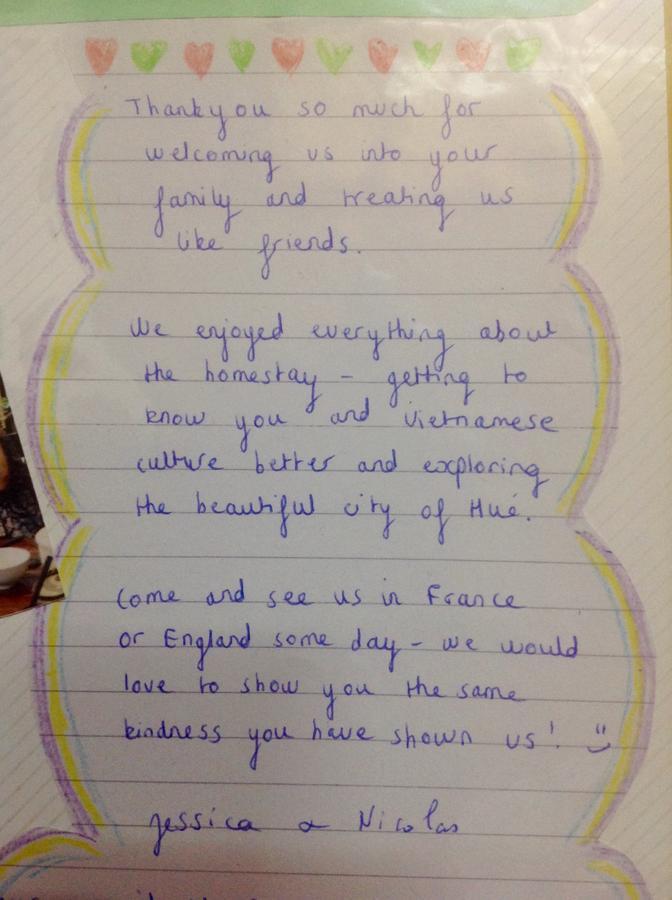 Thankyou so much for
welcoming us into your
family and treating us
like friends.
We enjoyed everything about
the homestay - getting to
know you and Vietnamese
culture better and exploring
the beautiful city of Hué.
Come and see us in France
or England some day - we would
love to show you the same
kindness you have shown us!
Jessica & Nicolas